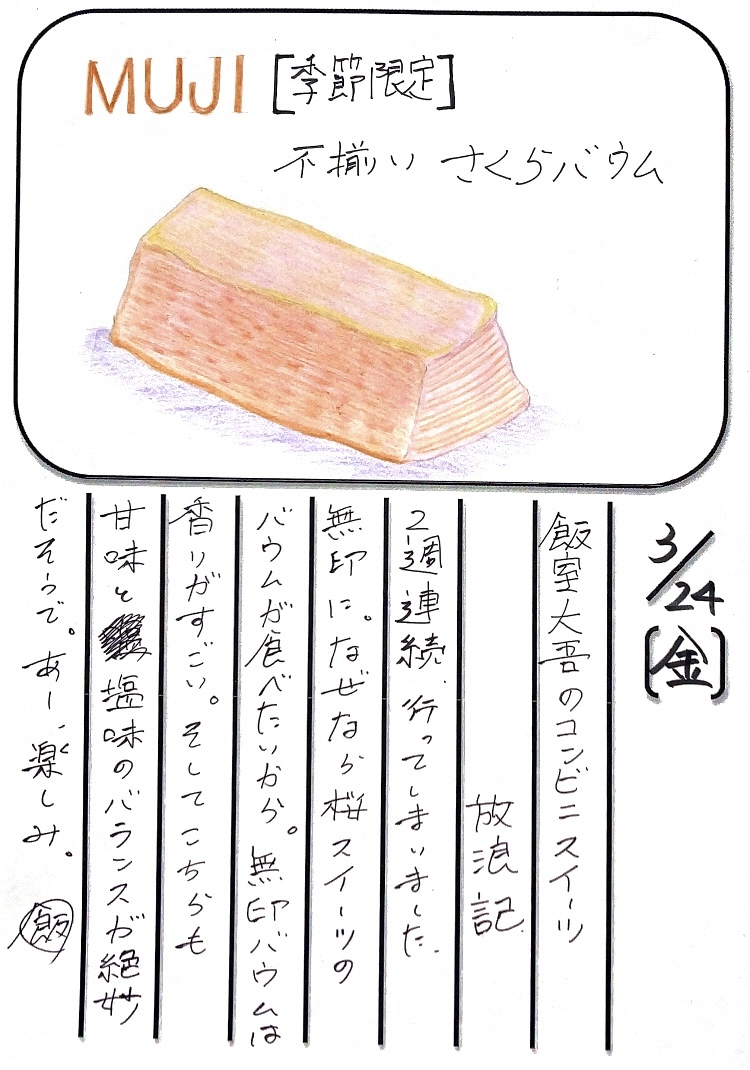 MUJI [季節限定]
不揃い さくらバウム
3/24
[金]
飯室大吾のコンビニスイーツ
放浪記
2週連続、行ってしまいました
無印に。なぜなら桜スイーツの
バウムが食べたいから。無印バウムは
香りがすごい。そしてこちらも
甘味と塩味のバランスが絶妙
だそうで。あー、楽しみ。
飯